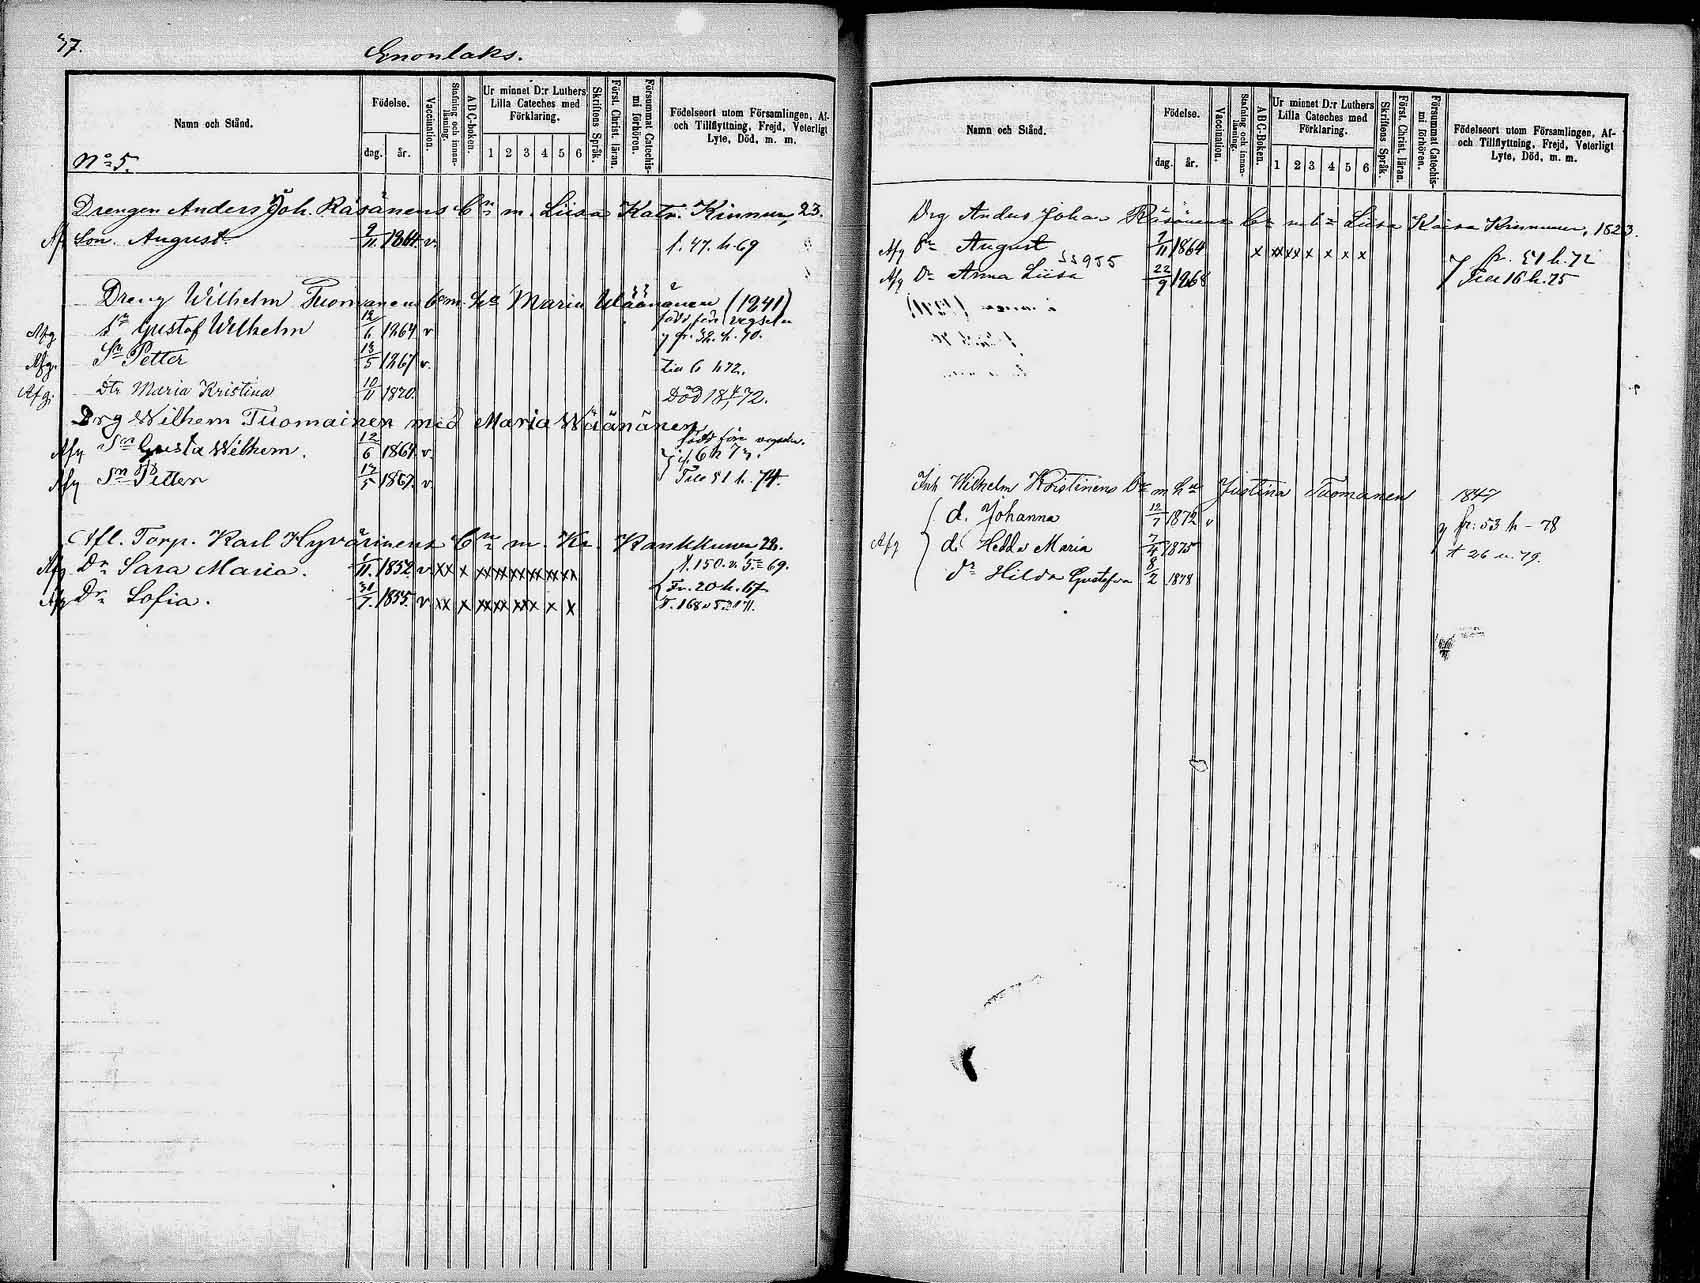 37.
Enonlaks.
Namn och Stånd.
Födelse.
dag. år.
Vaccination.
Stafning och innan-läsning.
A B C-boken.
Ur minnet D:r Luthers Lilla Cateches med Förklaring.
1 2 3 4 5 6
Skriftens Språk.
Först. Christ. läran.
Försummat Catechis-mi förhören.
Födelseort utom Församlingen, Af- och Tillflyttning, Frejd, Veterligt Lyte, Död, m. m.
No 5.
Drengen Anders Joh. Räsänens Bn m. Liisa Katr. Kinnun, 23.
Af Son. August. 2/11 1864 v. f. 47. h. 69
Dreng Wilhelm Tuomanens Bn m. Ha Maria Wäänänen (1841)
Afg Sn Gustaf Wilhelm 12/6 1864 v född före vegseln
y fr. 32. h. 70.
Afg. Sn Petter 13/5 1867 v. till 6 h 72.
Afg. Dtr Maria Kristina 10/11 1870. Död 18 4/ 72.
Drg Wilhem Tuomainen med Maria Wäänänen
Afg Sn Gusta Wilhem. 12/6 1864 v. född före vegseln.
if. 6 h 73.
Afg Sn Petter 13/5 1867. v. Till 51 h. 74.
Afl. Torp. Karl Hyvärinens Bn m. Kr. Kankkunen 28.
Afg Dr Sara Maria. 1/11. 1852. v xx x xx xx xx x x x f. 150. v. 5= 69.
Afg Dr Sofia. 31/7. 1855. v xx x xx xx xx x x x Fr. 20 h. 67
T. 168 v 5= 71.
Namn och Stånd.
Födelse.
dag. år.
Vaccination.
Stafning och innan-läsning.
ABC-Boken.
Ur minnet D:r Luthers Lilla Cateches med Förklaring.
1 2 3 4 5 6
Skriftens Språk.
Först. Christ. läran.
Försummat Catechis-mi förhören.
Födelseort utom Församlingen, Af- och Tillflyttning, Frejd, Veterligt Lyte, Död, m. m.
Drg Anders Johan Räsänens Bn m ha Liisa Kaisa Kinnunen, 1823.
Afg Sn August 2/11 1864 x xx xx x x x x fr. 51 h. 72
Afg Dr Anna Liisa 22/9 1868 Till 16 h. 75
Inh Wilhelm Koistinens Bn m Ha Justina Tuomanen 1847
d. Johanna 12/7 1872 v y fr: 53 h - 78
Afg d. Hedda Maria 7/4 1875 t 26 h. 79.
dr Hilda Gustafva 8/2 1878